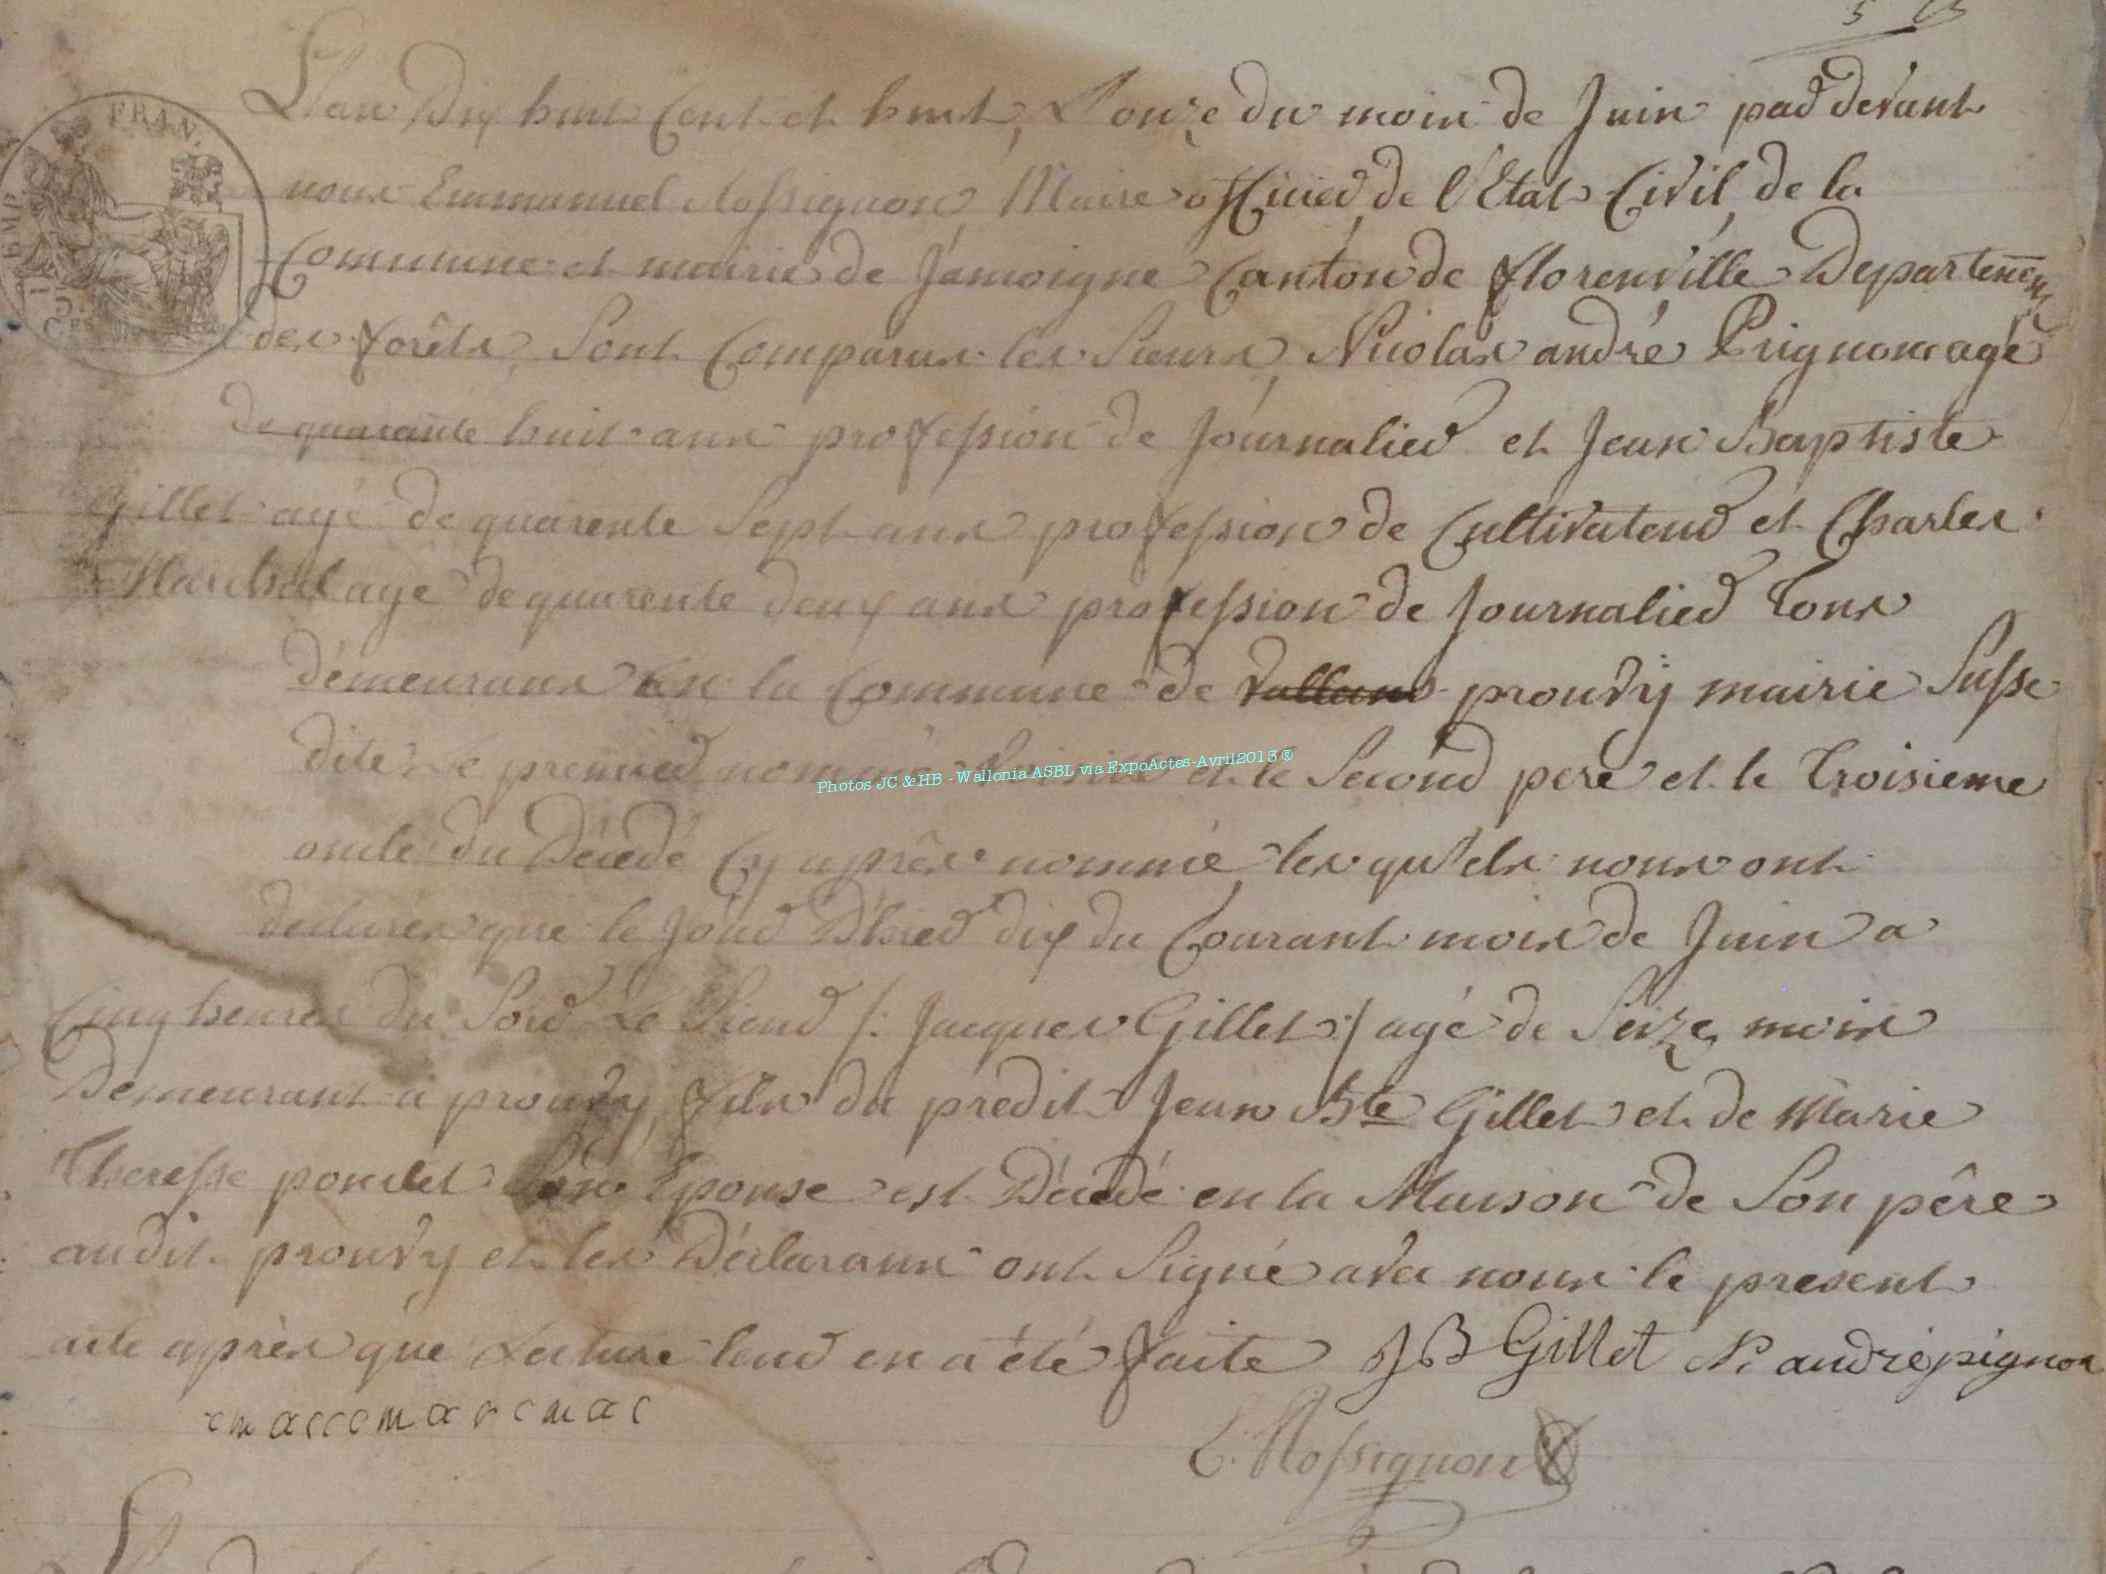 L'an Dix huit Cent et huit, L'onze du mois de Juin par devant
nous Emmanuel Rossignon Maire officier de l'Etat Civil de la
Commune et mairie de Jámoigne Canton de florenville Departement
des forêts, Sont Comparus les Sieurs Nicolas andré Pignon agé
de quarante huit ans profession de Journalier et Jean Baptiste
Gillet agé de quarente Sept ans profession de Cultivateur et Charles
Marchal agé de quarente deux ans profession de Journalier Tous
démeurans En la Commune de prouvÿ mairie Susse
dite Le premier nommé et le Second pere et le Troisieme
oncle du Décedé Cy après nommé les qu'els nous ont
declarés que le Jour D'hier dix du Courant mois de Juin a
Cinq heures du Soir Le Sieur /: Jacques Gillet :/ agé de Seize mois
Demeurant a prouvy, fils du predit Jean Bte Gillet et de Marie
Theresse poncelet Son Epouse est Décedé en la Maison de Son pêre
audit prouvy et les Déclarans ont Signé avec nous le present
acte après que Lecture leur en a été faite J B Gillet N: andrépignon
E. Rossignon
FRAN.
EMP.
Photos JC & HB - Wallonia ASBL via ExpoActes-Avril2013 ®